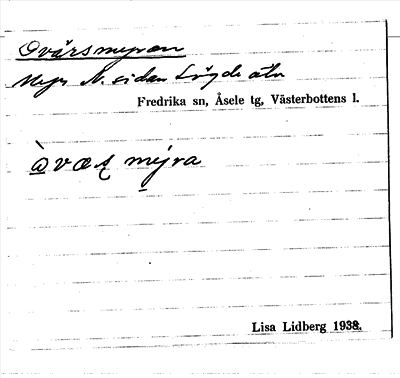 Ovärsmyran
Myr N. sidan Lögde älv
Fredrika sn, Åsele tg, Västerbottens l.
mýra
Lisa Lidberg 1938.